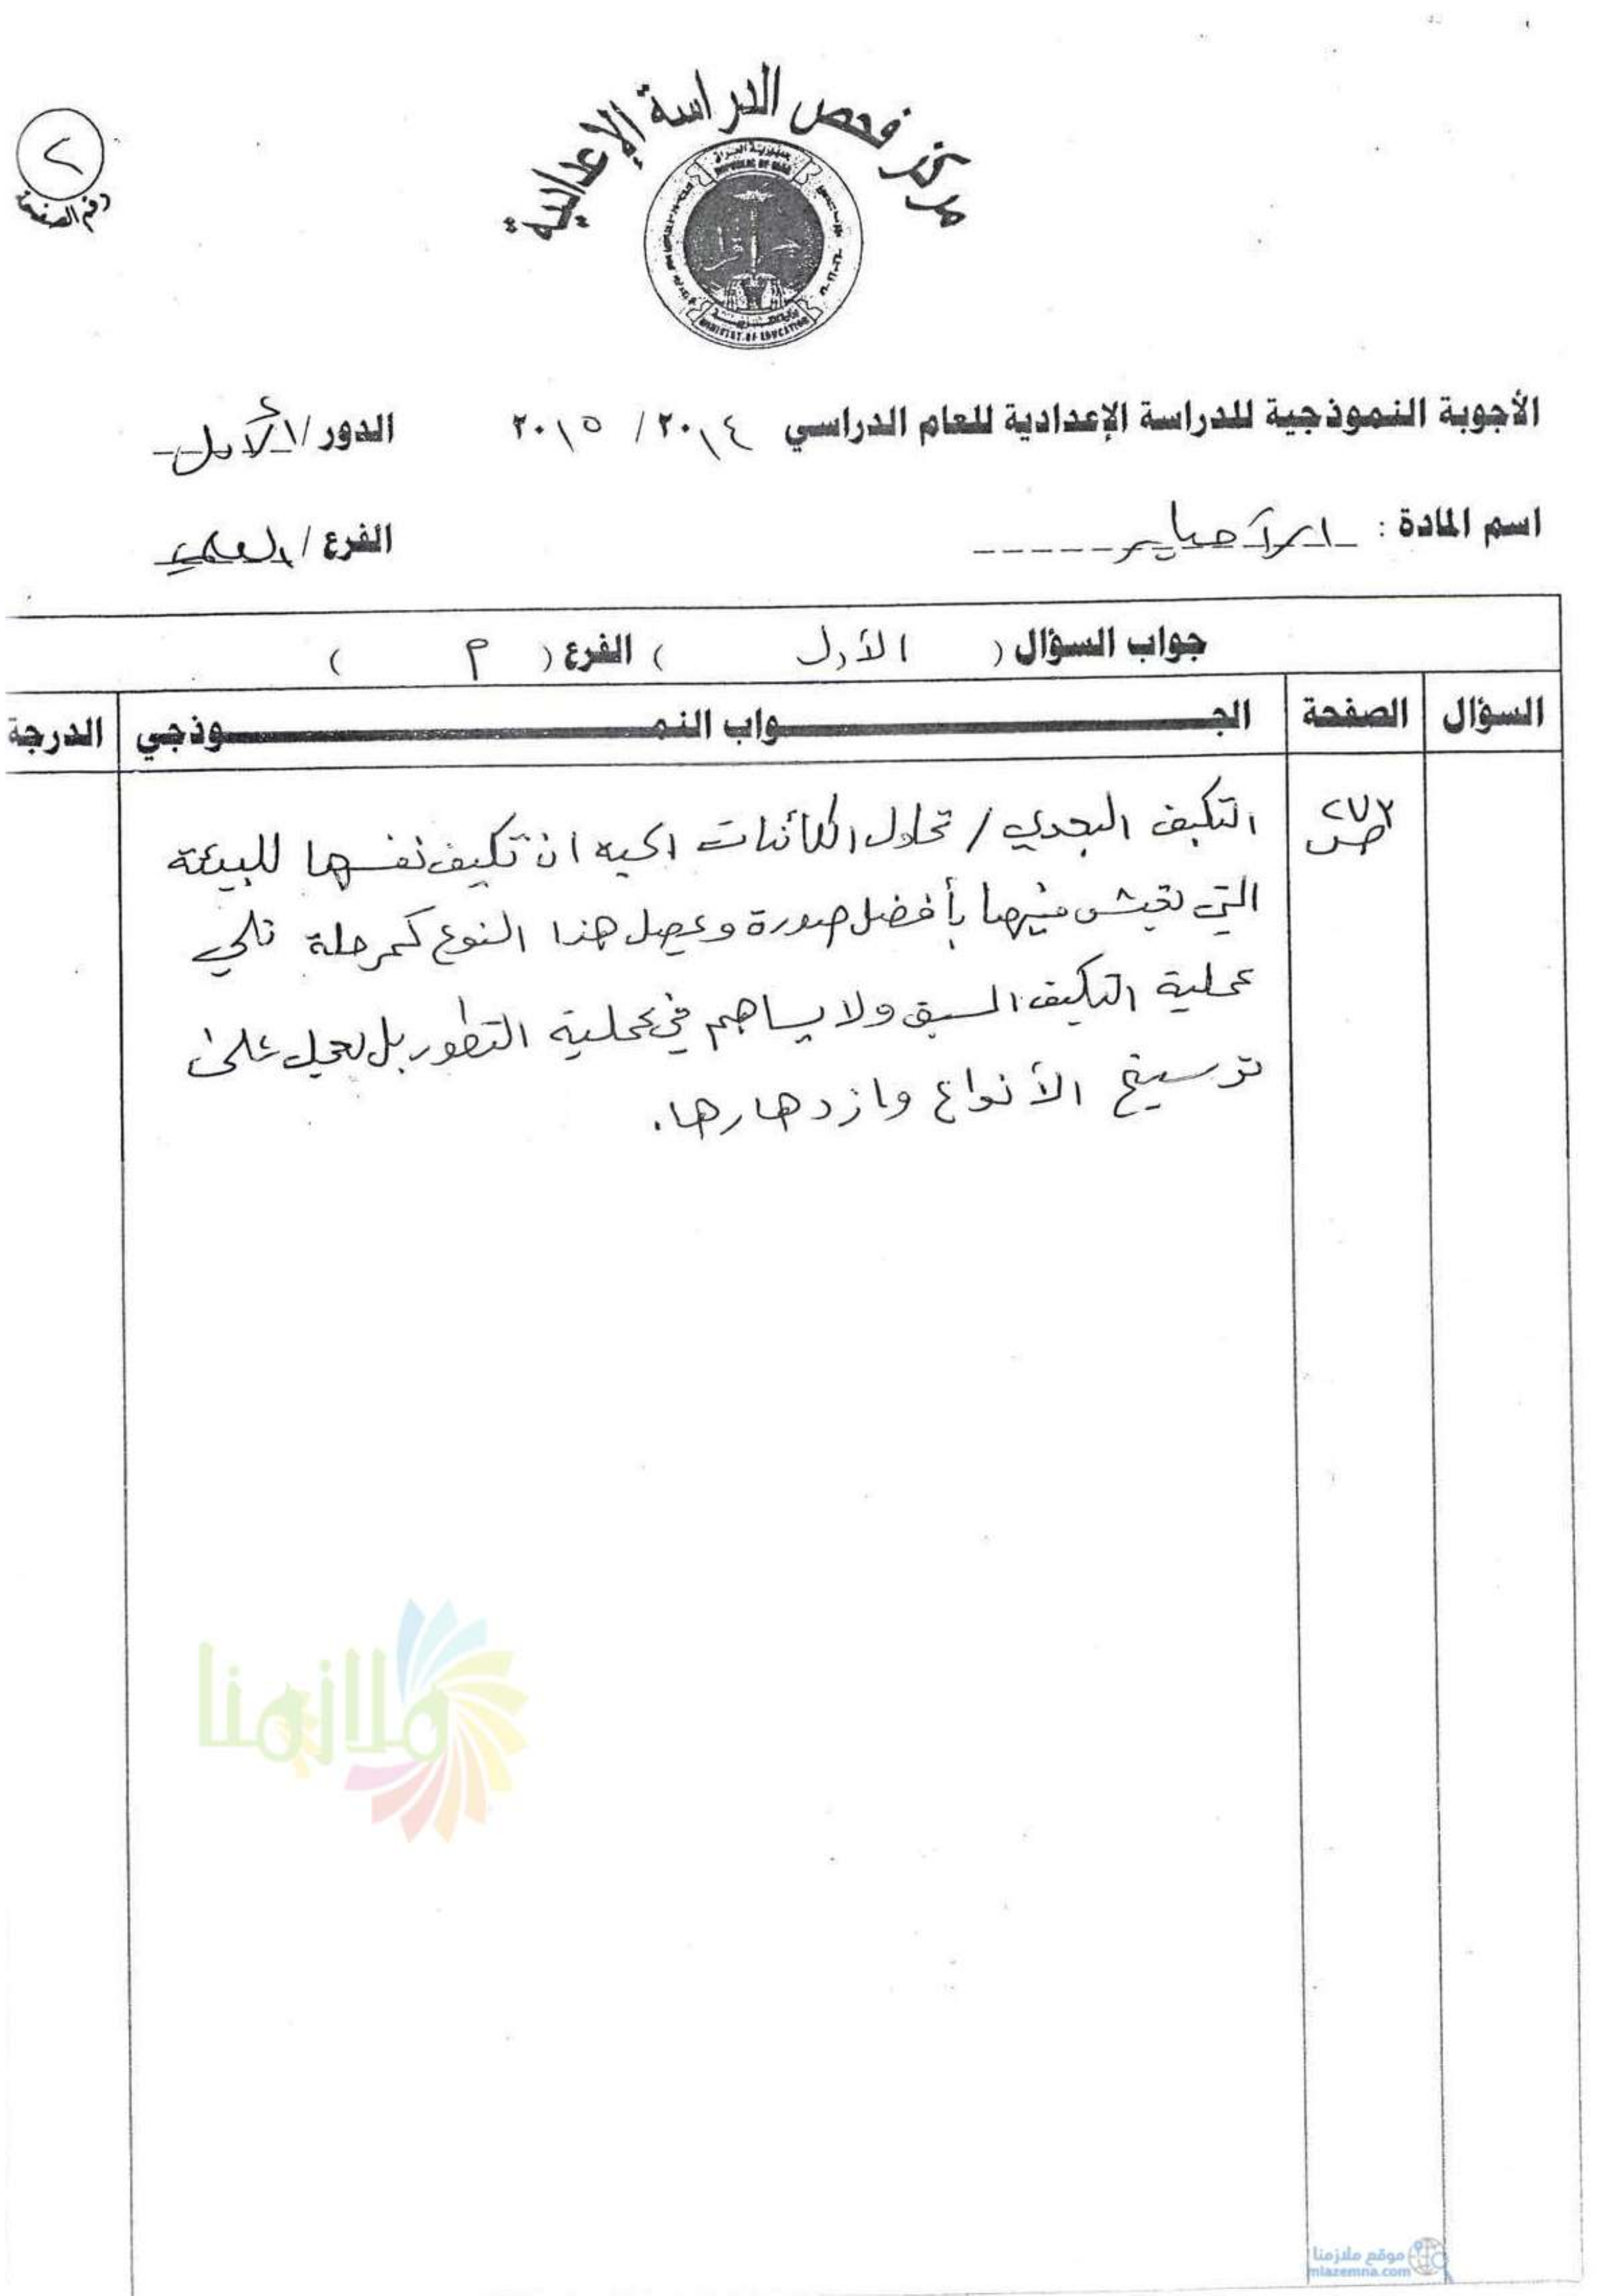 مركز فحص الدراسة الإعدادية
٢
رقم الصفحة
جمهورية العراق
REPUBLIC OF IRAQ
MINISTRY OF EDUCATION
الأجوبة النموذجية للدراسة الإعدادية للعام الدراسي ٢٠١٤ / ٢٠١٥ الدور / الأول
اسم المادة : الأحياء الفرع / العلمي
جواب السؤال ( الأول ) الفرع ( م )
السؤال الصفحة الجـــواب النمـــوذجي الدرجة
ص ٢٧٣
التكيف البعدي / تحاول الكائنات الحية ان تكيف نفسها للبيئة
التي تعيش فيها بأفضل صورة ويحصل هذا النوع كمرحلة تلي
عملية التكيف المسبق ولا يساهم في عملية التطور بل يعمل على
ترسيخ الأنواع وازدهارها.
ملازمنا
موقع ملازمنا
mlazemna.com